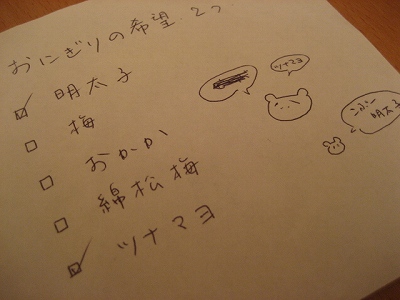 おにぎりの希望 2つ
明太子
梅
おかか
綿松梅
ツナマヨ
ツナマヨ
明太子